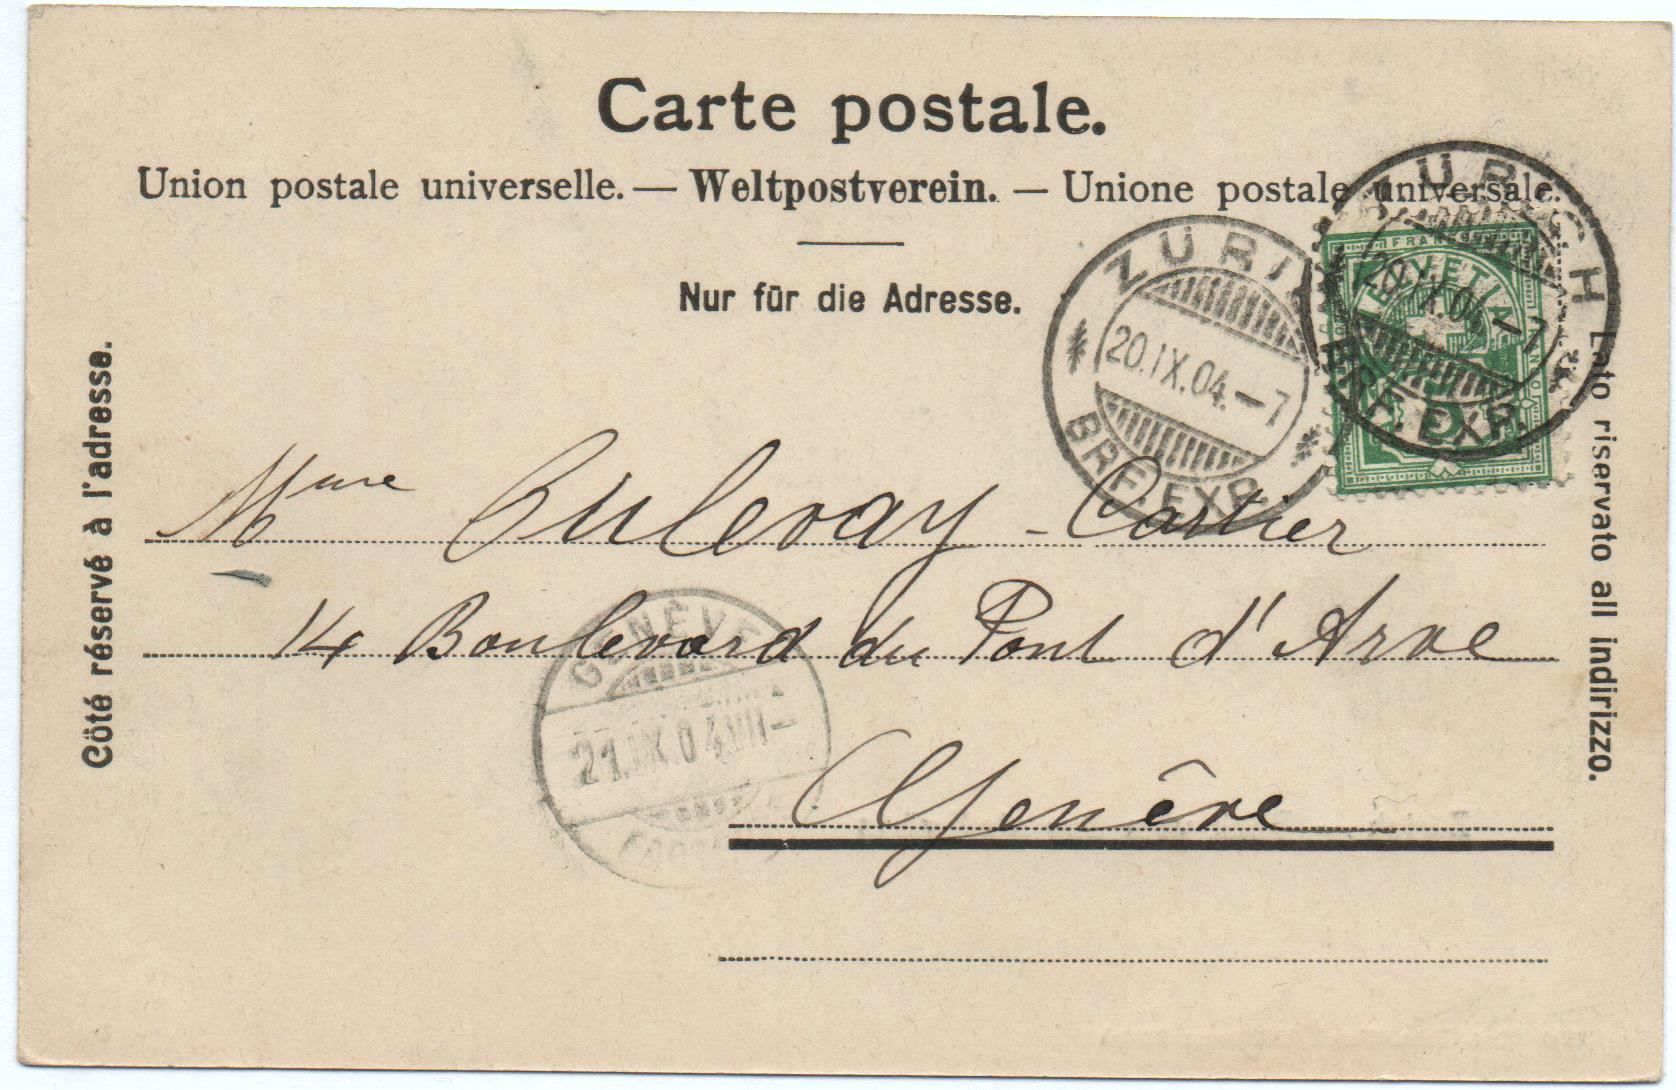 Carte postale.
Union postale universelle. — Weltpostverein. — Unione postale universale.
Nur für die Adresse.
Côté réservé à l'adresse.
Lato riservato all indirizzo.
ZÜRICH
20.IX.04.–7
BRF. EXP.
ZÜRICH
20.IX.04.–7
BRF. EXP.
FRANCO
HELVETIA
5
Mme Culevay - Cartier
14 Boulevard du Pont d'Arve
Genève
GENÈVE
21.IX.04.VII–